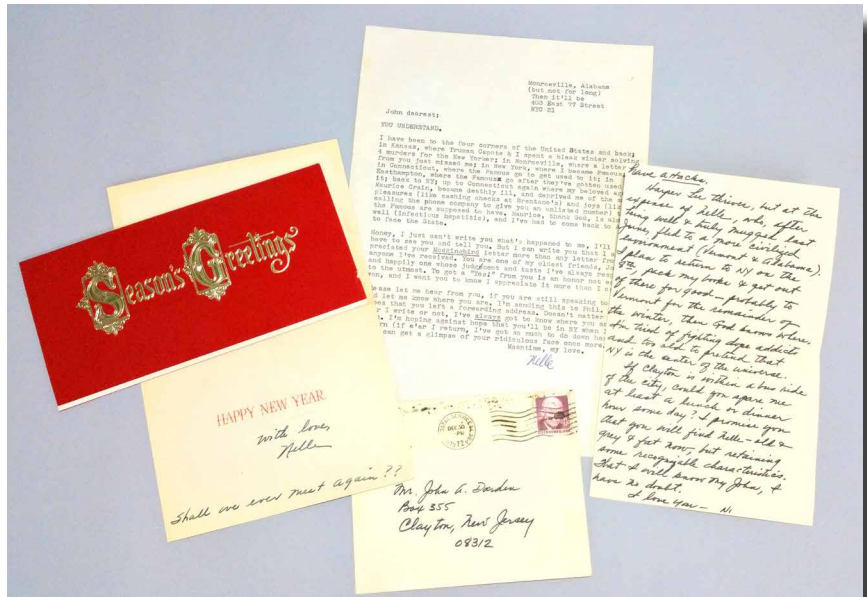 Season's Greetings
HAPPY NEW YEAR
with love,
Nelle
Shall we ever meet again??
Monroeville, Alabama
(but not for long)
Then it'll be
403 East 77 Street
NYC 21
John dearest;
YOU UNDERSTAND.
I have been to the four corners of the United States and back;
in Kansas, where Truman Capote & I spent a bleak winter solving
4 murders for the New Yorker; in Monroeville, where a letter
from you just missed me; in New York, where I became Famous;
in Connecticut, where the Famous go to get used to it; in
Easthampton, where the Famous go after they've gotten used
it; back to NY; up to Connecticut again where my beloved ag
Maurice Crain, became deathly ill, and deprived me of the
pleasures (like cashing checks at Brentano's) and joys (li
calling the phone company to give you an unlisted number)
the Famous are supposed to have. Maurice, thank God, is al
well (infectious hepatitis), and I've had to come back to
to face the State.
Honey, I just can't write you what's happened to me, I'll
have to see you and tell you. But I can write you that I a
preciated your Mockingbird letter more than any letter from
anyone I've received. You are one of my oldest friends, Jo
and happily one whose judgement and taste I've always resp
to the utmost. To get a "Yes!" from you is an honor not
won, and I want you to know I appreciate it more than I
ease let me hear from you, if you are still speaking to
d let me know where you are. I'm sending this to Phil.
pes that you left a forwarding address. Doesn't matter
r I write or not, I've always got to know where you a
. I'm hoping against hope that you'll be in NY when I
rn (if e'er I return, I've got so much to do down he
can get a glimpse of your ridiculous face once more.
Meantime, my love.
Nelle
DEC 30
PM
1972
Mr. John A. Darden
Box 355
Clayton, New Jersey
08312
Harper Lee thrives, but at the
expense of Nelle, who, after
being well & truly mugged last
fled to a more civilized
environment (Vermont & Alabama).
I plan to return to NY on the
8th, pack my books & get out
of there for good — probably to
Vermont for the remainder of
the winter, then God knows where.
I'm tired of fighting dope addicts
and too old to pretend that
NY is the center of the universe.
If Clayton is within a bus ride
of the city, could you spare me
at least a lunch or dinner
hour some day? I promise you
that you will find Nelle — old &
grey & fat now, but retaining
some recognizable characteristics.
That I will know my John, I
have no doubt.
I love you — N